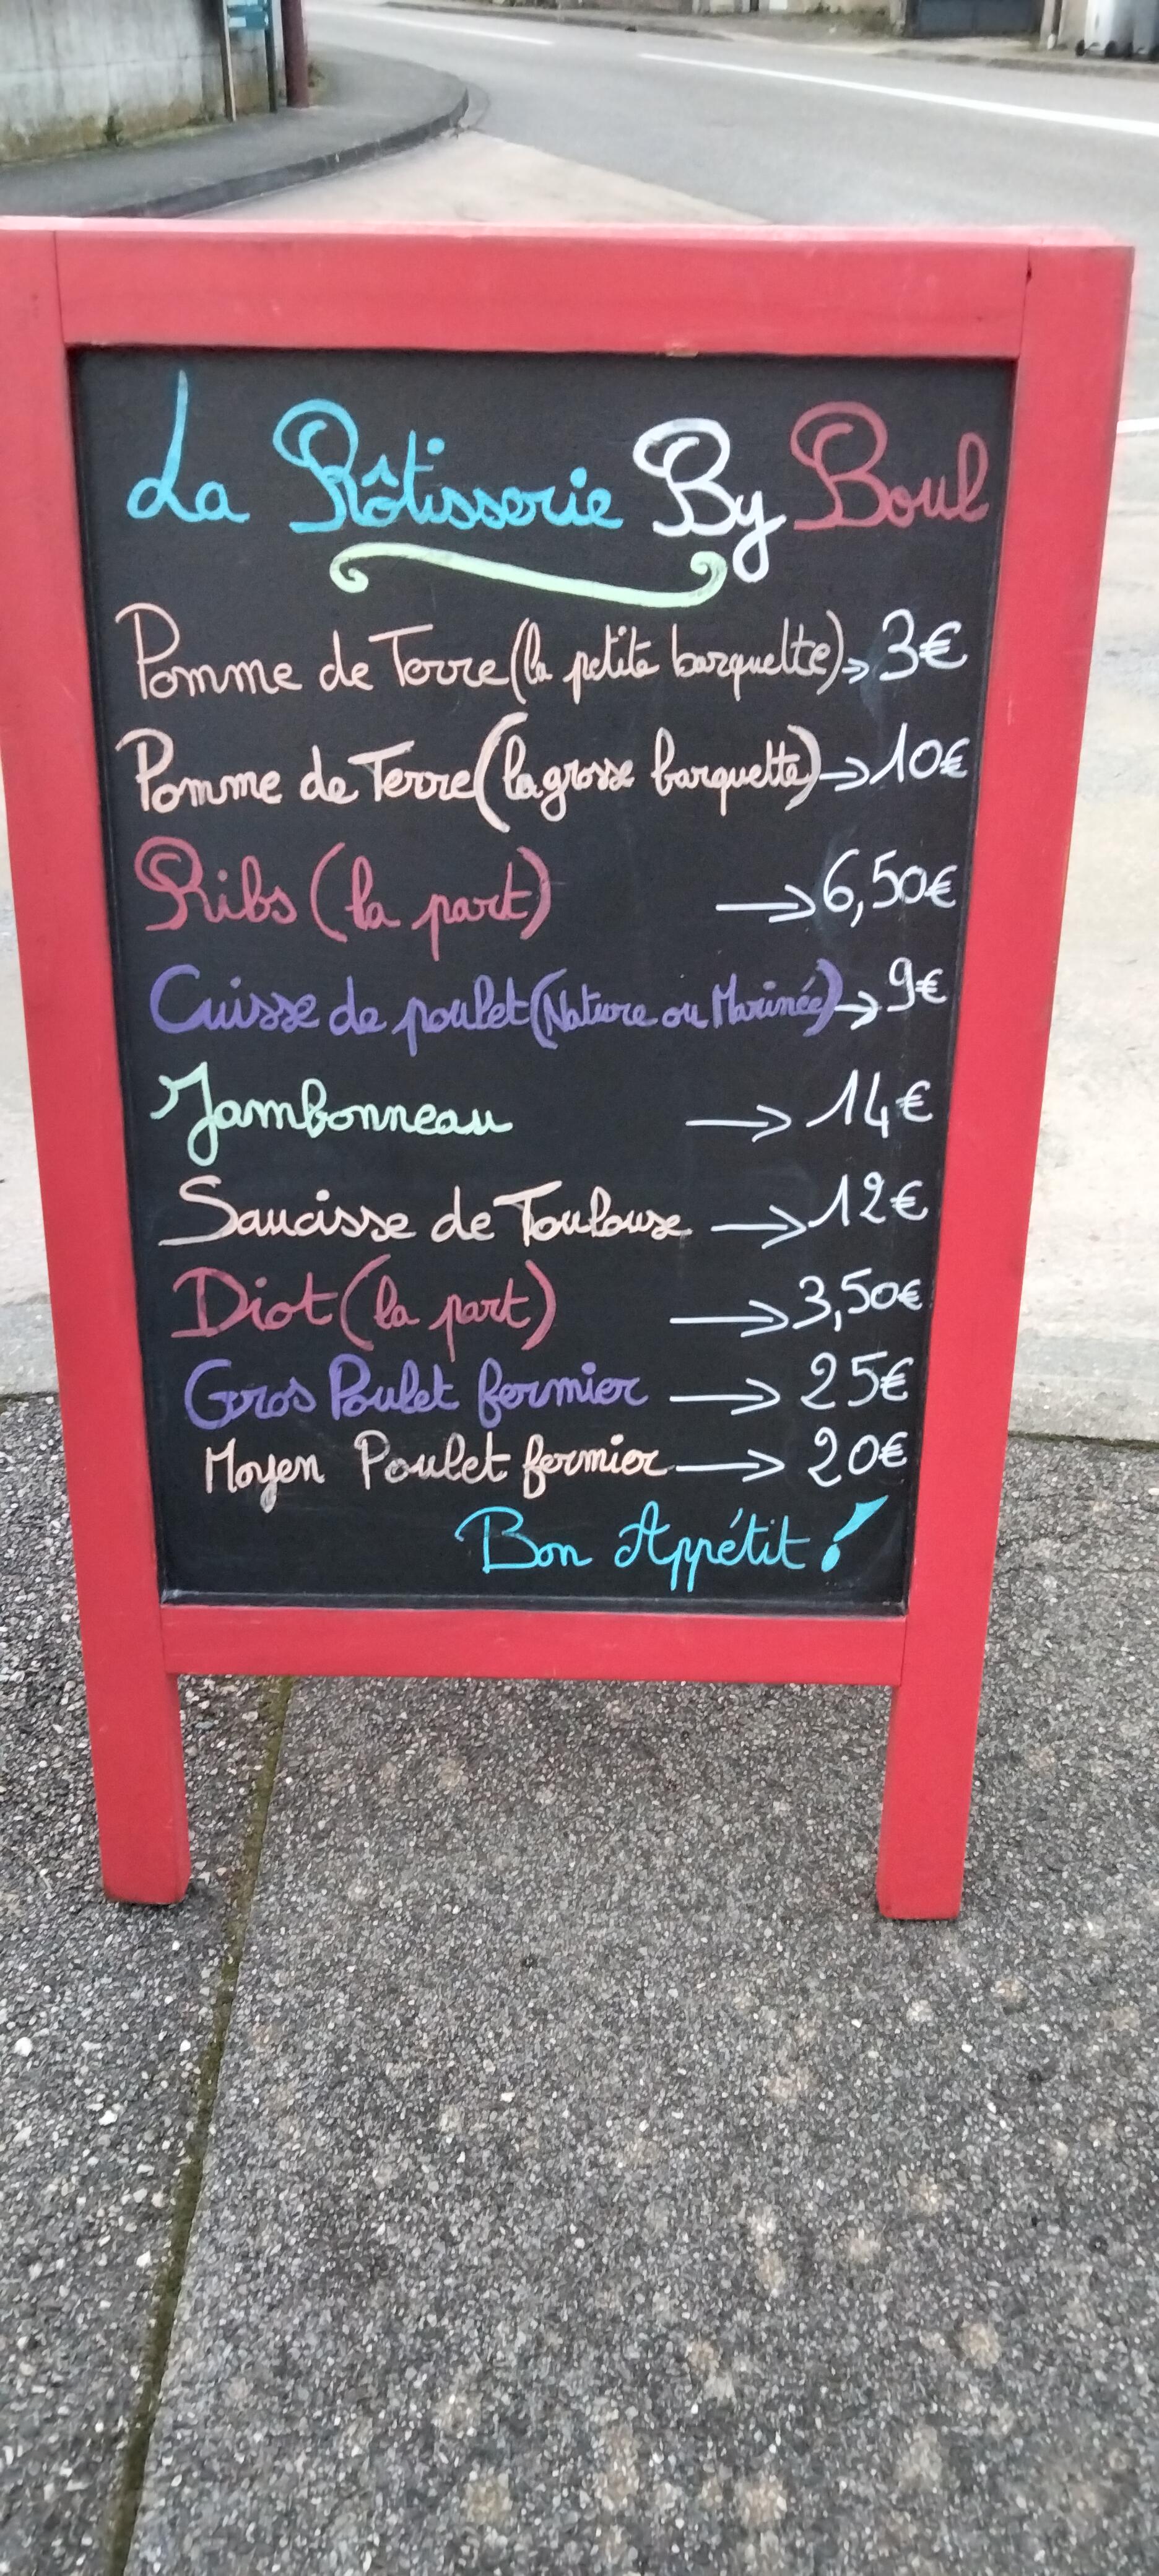 La Rôtisserie By Boul
Pomme de Terre (la petite barquette) → 3€
Pomme de Terre (la grosse barquette) → 10€
Ribs (la part) → 6,50€
Cuisse de poulet (Nature ou Marinée) → 9€
Jambonneau → 14€
Saucisse de Toulouse → 12€
Diot (la part) → 3,50€
Gros Poulet fermier → 25€
Moyen Poulet fermier → 20€
Bon Appétit !